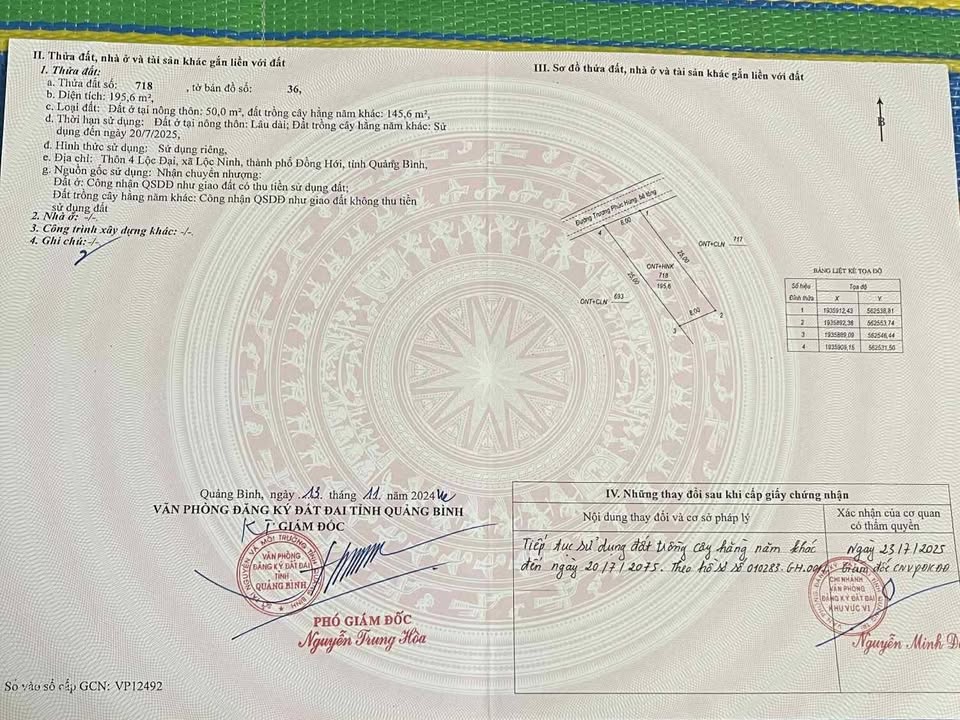 II. Thửa đất, nhà ở và tài sản khác gắn liền với đất
1. Thửa đất:
a. Thửa đất số: 718 , tờ bản đồ số: 36,
b. Diện tích: 195,6 m²,
c. Loại đất: Đất ở tại nông thôn: 50,0 m², đất trồng cây hằng năm khác: 145,6 m²,
d. Thời hạn sử dụng: Đất ở tại nông thôn: Lâu dài; Đất trồng cây hằng năm khác: Sử
dụng đến ngày 20/7/2025,
đ. Hình thức sử dụng: Sử dụng riêng,
e. Địa chỉ: Thôn 4 Lộc Đại, xã Lộc Ninh, thành phố Đồng Hới, tỉnh Quảng Bình,
g. Nguồn gốc sử dụng: Nhận chuyển nhượng:
Đất ở: Công nhận QSDĐ như giao đất có thu tiền sử dụng đất;
Đất trồng cây hằng năm khác: Công nhận QSDĐ như giao đất không thu tiền
sử dụng đất
2. Nhà ở: -/-
3. Công trình xây dựng khác: -/-
4. Ghi chú:-/-
Quảng Bình, ngày 13 tháng 11 năm 2024
VĂN PHÒNG ĐĂNG KÝ ĐẤT ĐAI TỈNH QUẢNG BÌNH
KT GIÁM ĐỐC
VĂN PHÒNG
ĐĂNG KÝ ĐẤT ĐAI
TỈNH
QUẢNG BÌNH
PHÓ GIÁM ĐỐC
Nguyễn Trung Hòa
Số vào sổ cấp GCN: VP12492
III. Sơ đồ thửa đất, nhà ở và tài sản khác gắn liền với đất
B
Đường Trương Phúc Hùng, bê tông
4 8,00 1
25,00
25,00
ONT+CLN 717
ONT+HNK
718
195,6
ONT+CLN 693
3 8,00 2
BẢNG LIỆT KÊ TỌA ĐỘ
Số hiệu Đỉnh thửa Tọa độ
X Y
1 1935912,43 562538,81
2 1935892,38 562553,74
3 1935889,09 562546,44
4 1935909,15 562531,50
IV. Những thay đổi sau khi cấp giấy chứng nhận
Nội dung thay đổi và cơ sở pháp lý
Xác nhận của cơ quan
có thẩm quyền
Tiếp tục sử dụng đất trồng cây hằng năm khác
đến ngày 20/7/2075. Theo hồ sơ số 010283.GH.001
Ngày 23/7/2025
Giám đốc CNVPĐKĐĐ
CHI NHÁNH
VĂN PHÒNG
ĐĂNG KÝ ĐẤT ĐAI
KHU VỰC VI
Nguyễn Minh